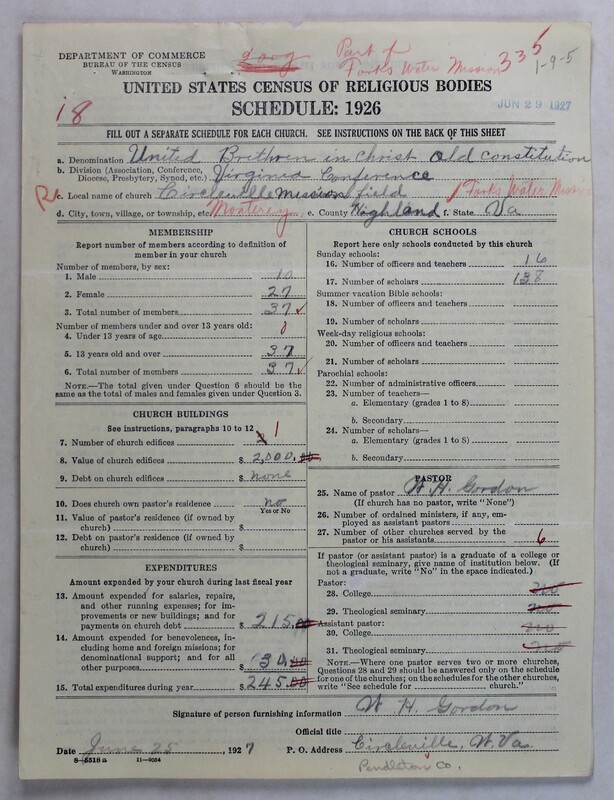 DEPARTMENT OF COMMERCE
BUREAU OF THE CENSUS
WASHINGTON
Part of
Forks Water Mission
335
1-9-5
UNITED STATES CENSUS OF RELIGIOUS BODIES
SCHEDULE: 1926
JUN 29 1927
18
FILL OUT A SEPARATE SCHEDULE FOR EACH CHURCH. SEE INSTRUCTIONS ON THE BACK OF THIS SHEET
a. Denomination United Brethren in Christ Old constitution
b. Division (Association, Conference, Diocese, Presbytery, Synod, etc.) Virginia Conference
c. Local name of church Circleville Mission field Forks Water Mission
d. City, town, village, or township, etc. Monterey e. County Highland f. State Va
MEMBERSHIP
Report number of members according to definition of
member in your church
Number of members, by sex:
1. Male 10
2. Female 27
3. Total number of members 37
Number of members under and over 13 years old:
4. Under 13 years of age 0
5. 13 years old and over 37
6. Total number of members 37
NOTE.—The total given under Question 6 should be
same as the total of males and females given under Question 3.
CHURCH BUILDINGS
See instructions, paragraphs 10 to 12
7. Number of church edifices 1
8. Value of church edifices $ 2,000.00
9. Debt on church edifices $ none
10. Does church own pastor's residence no
Yes or No
11. Value of pastor's residence (if owned by
church) $
12. Debt on pastor's residence (if owned by
church) $
EXPENDITURES
Amount expended by your church during last fiscal year
13. Amount expended for salaries, repairs,
and other running expenses; for im-
provements or new buildings; and for
payments on church debt $ 215.00
14. Amount expended for benevolences, in-
cluding home and foreign missions; for
denominational support; and for all
other purposes 30.00
15. Total expenditures during year $ 245.00
CHURCH SCHOOLS
Report here only schools conducted by this church
Sunday schools:
16. Number of officers and teachers 16
17. Number of scholars 138
Summer vacation Bible schools:
18. Number of officers and teachers
19. Number of scholars
Week-day religious schools:
20. Number of officers and teachers
21. Number of scholars
Parochial schools:
22. Number of administrative officers
23. Number of teachers—
a. Elementary (grades 1 to 8)
b. Secondary
24. Number of scholars—
a. Elementary (grades 1 to 8)
b. Secondary
PASTOR
25. Name of pastor W. H. Gordon
(If church has no pastor, write "None")
26. Number of ordained ministers, if any, em-
ployed as assistant pastors
27. Number of other churches served by the
pastor or his assistants 6
If pastor (or assistant pastor) is a graduate of a college or
theological seminary, give name of institution below. (If
not a graduate, write "No" in the space indicated.)
Pastor:
28. College no
29. Theological seminary no
Assistant pastor:
30. College no
31. Theological seminary no
NOTE.—Where one pastor serves two or more churches,
Questions 28 and 29 should be answered only on the schedule
for one of the churches; on the schedules for the other churches,
write "See schedule for church."
Signature of person furnishing information W. H. Gordon
Official title
Date June 25, 1927 P. O. Address Circleville, W. Va.
8—5518 a 11—9054
Pendleton Co.